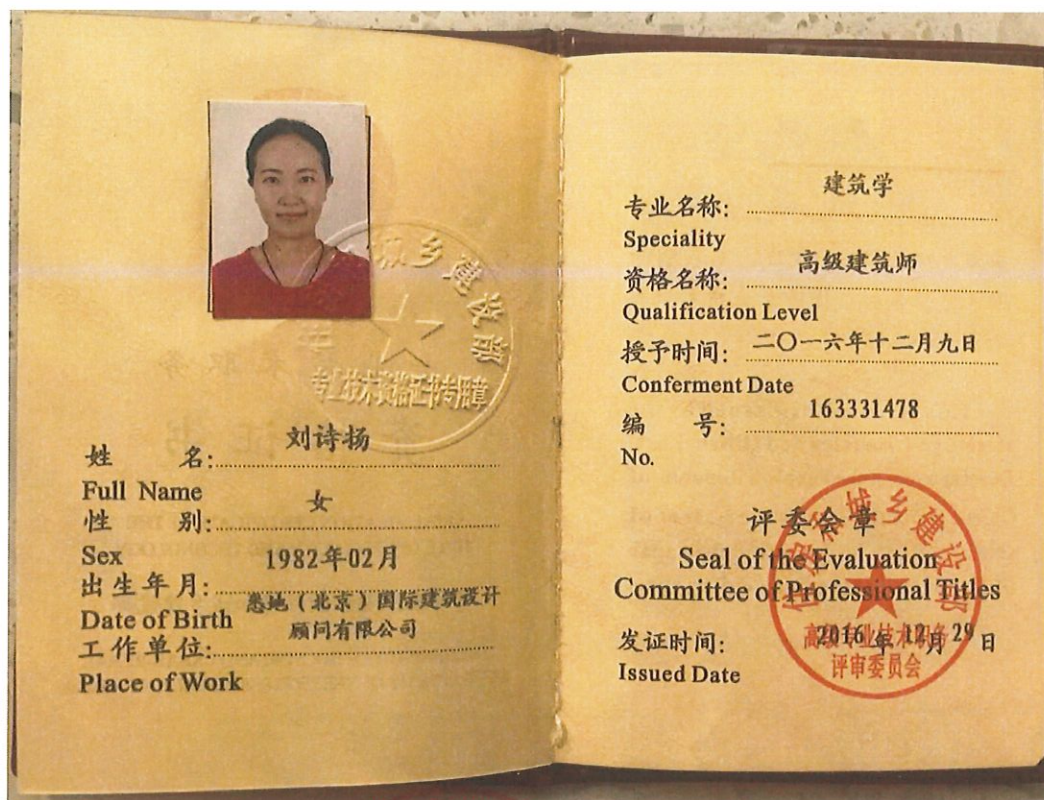 城乡建设部
专业技术资格证书专用章
姓 名: 刘诗扬
Full Name
性 别: 女
Sex
出生年月: 1982年02月
Date of Birth
工作单位: 悉地（北京）国际建筑设计
顾问有限公司
Place of Work
专业名称: 建筑学
Speciality
资格名称: 高级建筑师
Qualification Level
授予时间: 二〇一六年十二月九日
Conferment Date
编 号: 163331478
No.
评委会章
Seal of the Evaluation
Committee of Professional Titles
住房和城乡建设部
高级专业技术职务
评审委员会
发证时间: 2016年12月29日
Issued Date